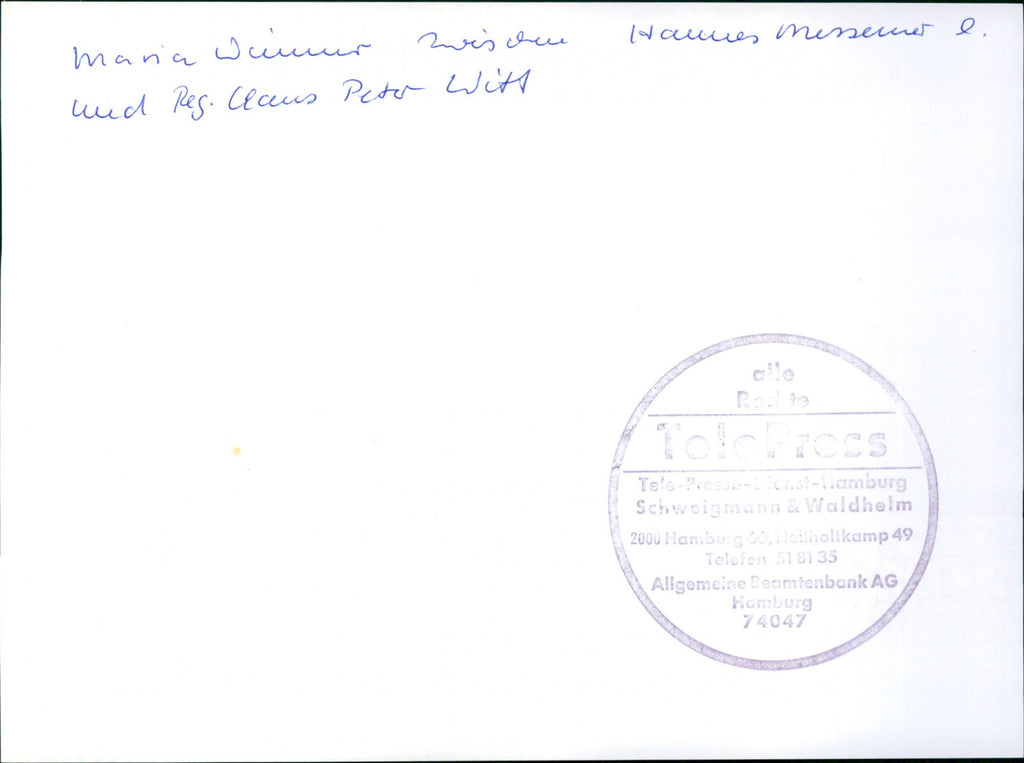 Maria Wimmer zwischen Hannes Messemer l.
und Reg. Claus Peter Witt
alle
Rechte
TelePress
Tele-Presse-Dienst-Hamburg
Schweigmann & Waldheim
2000 Hamburg 60, Heilholtkamp 49
Telefon 51 81 35
Allgemeine Beamtenbank AG
Hamburg
74047